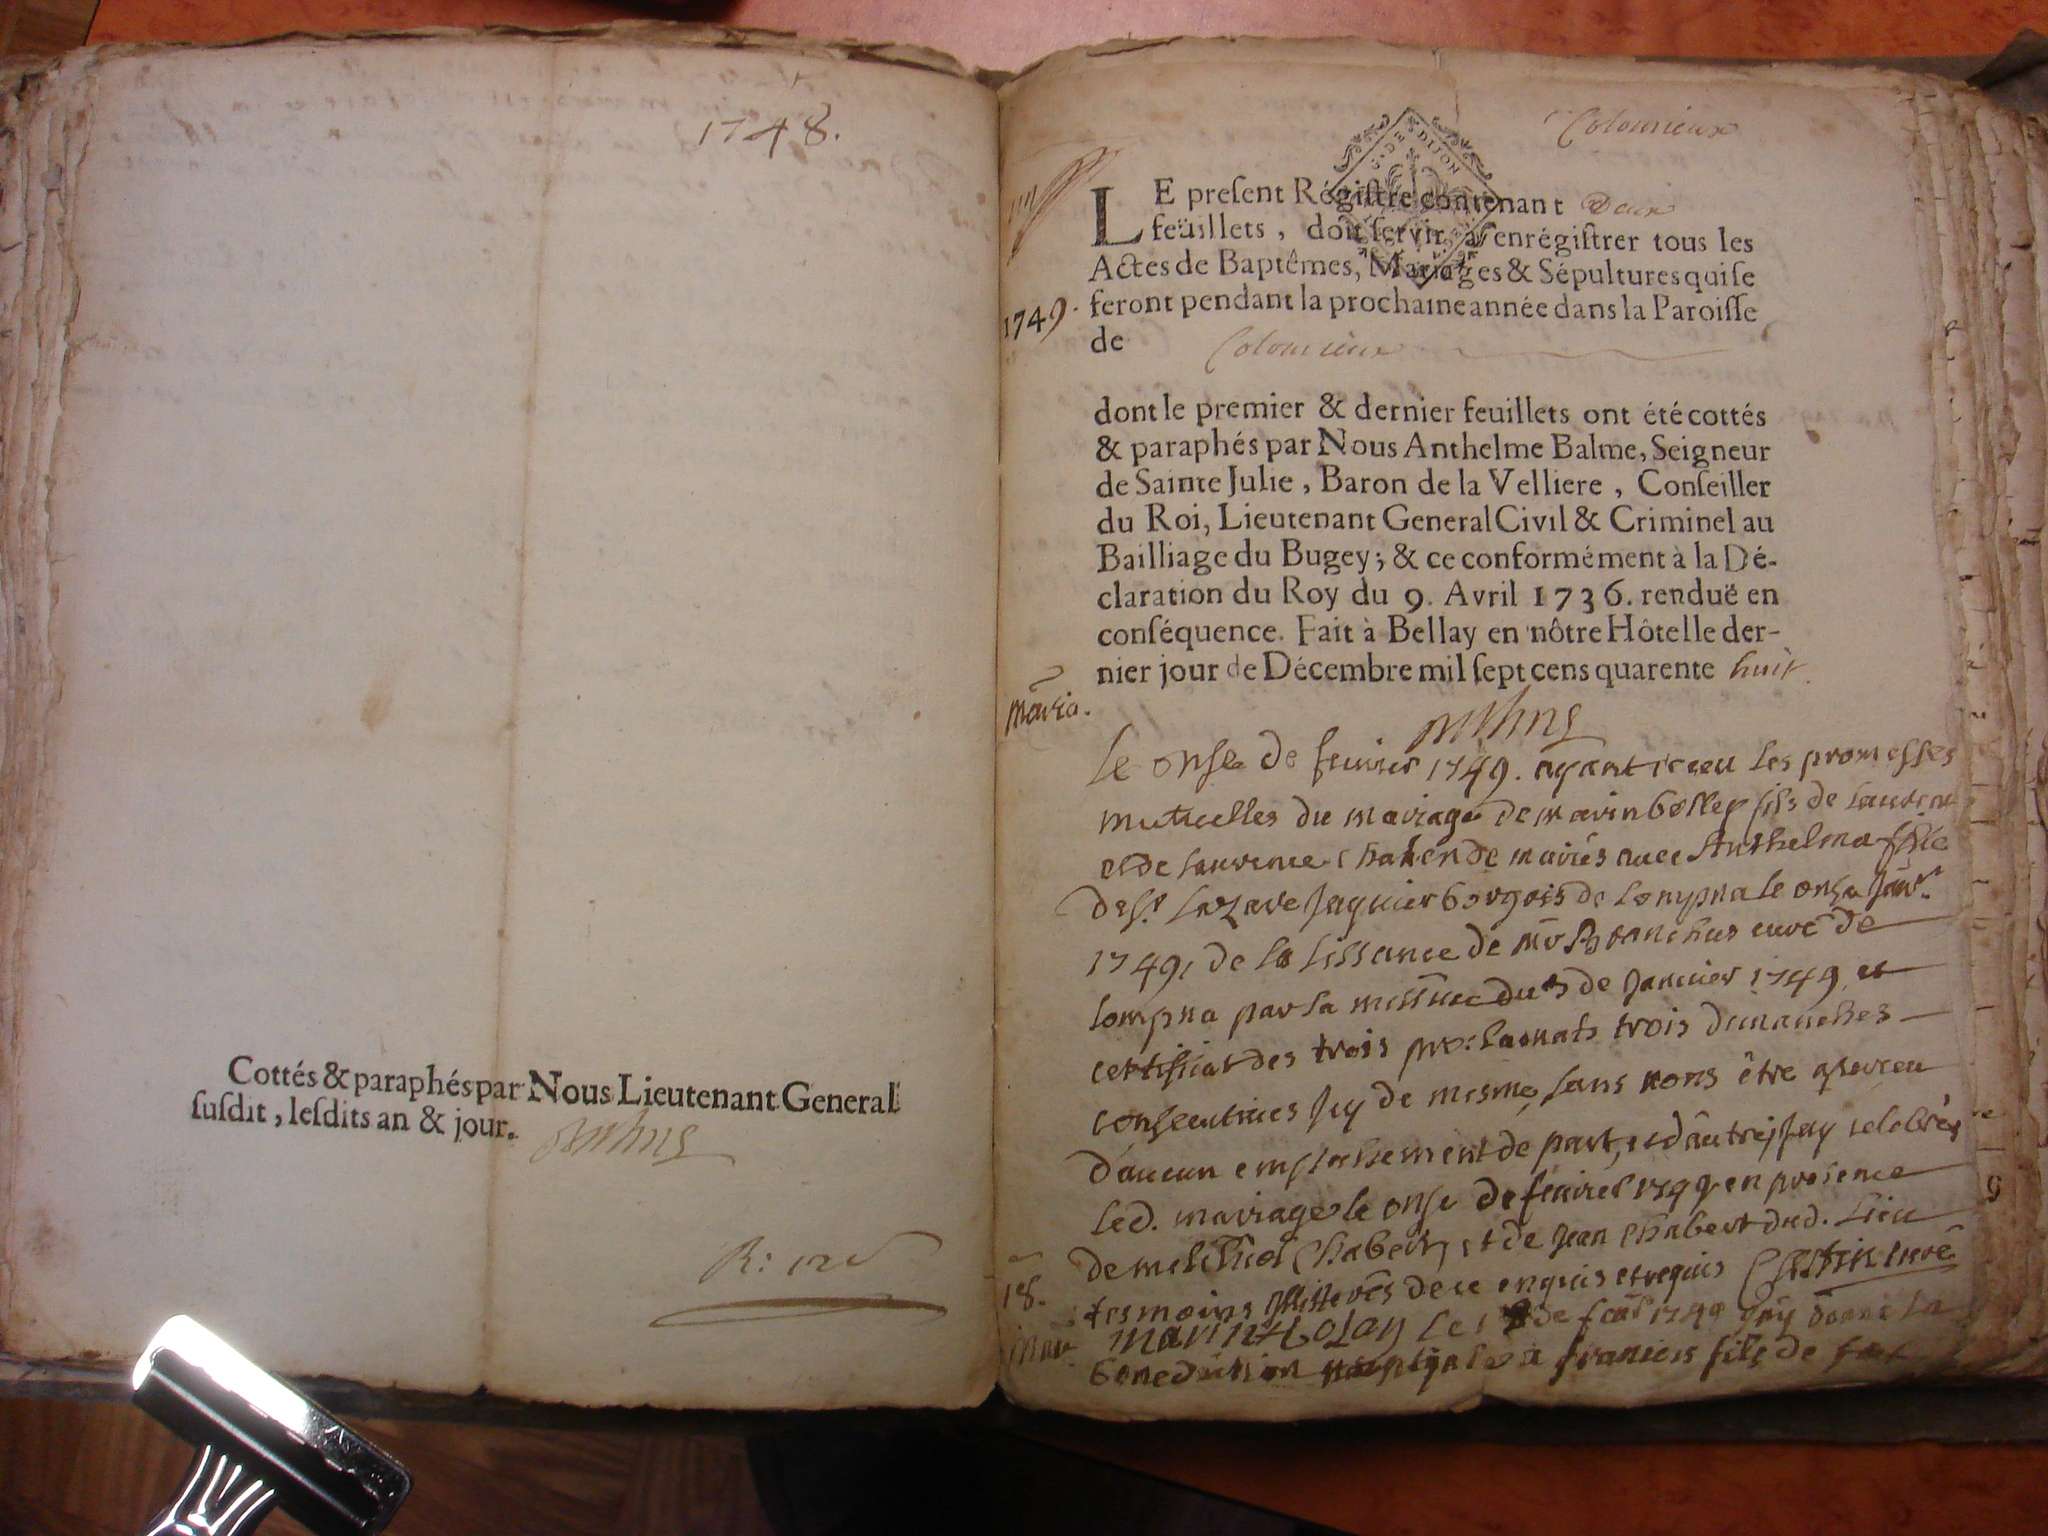 1748.
Cottés & paraphés par Nous Lieutenant General
susdit, lesdits an & jour.
Colomieux
G. DE DIJON
LE present Régistre contenant Deux
feüillets, doit servir à enrégistrer tous les
Actes de Baptêmes, Mariages & Sépultures qui se
feront pendant la prochaine année dans la Paroisse
1749.
de Colomieux
dont le premier & dernier feuillets ont été cottés
& paraphés par Nous Anthelme Balme, Seigneur
de Sainte Julie, Baron de la Velliere, Conseiller
du Roi, Lieutenant General Civil & Criminel au
Bailliage du Bugey; & ce conformément à la Dé-
claration du Roy du 9. Avril 1736. renduë en
conséquence. Fait à Bellay en nôtre Hôtel le der-
nier jour de Décembre mil sept cens quarente huit.
maria.
Le onse de feuvrier 1749. ayant receu les promesses
mutuelles du mariage de marin fils de
et de mariés avec Anthelma fille
de Sr. Lazare Jaquier borgois de Lompna le onse Janvr.
1749, de la de curé de
Lompna par la du de Janvier 1749 et
certificat des trois trois dimanches
consecutives Jey de mesme, sans etre
d'aucun de part, et d'autre, Jay celebrés
led. mariage le onse de feuvrier 1749 en presence
de Chabert, et de Jean Chabert dud. Lieu
tesmoins de ce enquis et requis curé
18.
marin Le de 1749 jay donné la
benediction a francois fils de